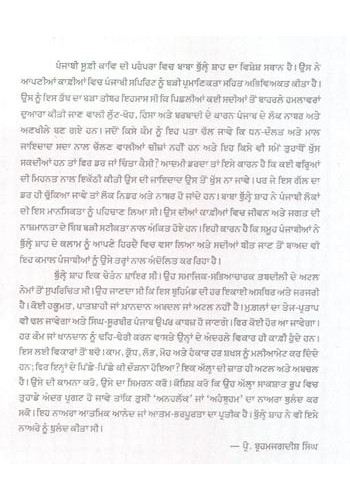 ਪੰਜਾਬੀ ਸੂਫ਼ੀ ਕਾਵਿ ਦੀ ਪਰੰਪਰਾ ਵਿਚ ਬਾਬਾ ਬੁੱਲ੍ਹੇ ਸ਼ਾਹ ਦਾ ਵਿਸ਼ੇਸ਼ ਸਥਾਨ ਹੈ। ਉਸ ਨੇ
ਆਪਣੀਆਂ ਕਾਫ਼ੀਆਂ ਵਿਚ ਪੰਜਾਬੀ ਸਪਿਰਿਟ ਨੂੰ ਬੜੀ ਪ੍ਰਮਾਣਿਕਤਾ ਸਹਿਤ ਅਭਿਵਿਅਕਤ ਕੀਤਾ ਹੈ।
ਉਸ ਨੂੰ ਇਸ ਤੱਥ ਦਾ ਬੜਾ ਤੀਬਰ ਇਹਸਾਸ ਸੀ ਕਿ ਪਿਛਲੀਆਂ ਕਈ ਸਦੀਆਂ ਤੋਂ ਬਾਹਰਲੇ ਹਮਲਾਵਰਾਂ
ਦੁਆਰਾ ਕੀਤੀ ਜਾਣ ਵਾਲੀ ਲੁੱਟ-ਖੋਹ, ਹਿੰਸਾ ਅਤੇ ਬਰਬਾਦੀ ਦੇ ਕਾਰਨ ਪੰਜਾਬ ਦੇ ਲੋਕ ਨਾਬਰ ਅਤੇ
ਅਣਖੀਲੇ ਬਣ ਗਏ ਹਨ। ਜਦੋਂ ਕਿਸੇ ਕੌਮ ਨੂੰ ਇਹ ਪਤਾ ਚੱਲ ਜਾਵੇ ਕਿ ਧਨ-ਦੌਲਤ ਅਤੇ ਮਾਲ
ਜਾਇਦਾਦ ਸਦਾ ਨਾਲ ਚੱਲਣ ਵਾਲੀਆਂ ਚੀਜ਼ਾਂ ਨਹੀਂ ਹਨ ਅਤੇ ਇਹ ਕਿਸੇ ਵੀ ਸਮੇਂ ਤੁਹਾਥੋਂ ਖੁੱਸ
ਸਕਦੀਆਂ ਹਨ ਤਾਂ ਫਿਰ ਡਰ ਜਾਂ ਚਿੰਤਾ ਕੈਸੀ? ਆਦਮੀ ਡਰਦਾ ਤਾਂ ਇਸੇ ਕਾਰਨ ਹੈ ਕਿ ਕਈ ਵਰ੍ਹਿਆਂ
ਦੀ ਮਿਹਨਤ ਨਾਲ ਇਕੱਠੀ ਕੀਤੀ ਉਸ ਦੀ ਜਾਇਦਾਦ ਉਸ ਤੋਂ ਖੁੱਸ ਨਾ ਜਾਵੇ। ਪਰ ਜੇ ਇਸ ਗੱਲ ਦਾ
ਡਰ ਹੀ ਚੁੱਕਿਆ ਜਾਵੇ ਤਾਂ ਲੋਕ ਨਿਡਰ ਅਤੇ ਨਾਬਰ ਹੋ ਜਾਂਦੇ ਹਨ। ਬਾਬਾ ਬੁੱਲ੍ਹੇ ਸ਼ਾਹ ਨੇ ਪੰਜਾਬੀ ਲੋਕਾਂ
ਦੀ ਇਸ ਮਾਨਸਿਕਤਾ ਨੂੰ ਪਹਿਚਾਣ ਲਿਆ ਸੀ। ਉਸ ਦੀਆਂ ਕਾਫ਼ੀਆਂ ਵਿਚ ਜੀਵਨ ਅਤੇ ਜਗਤ ਦੀ
ਨਾਸ਼ਮਾਨਤਾ ਦੇ ਬਿੰਬ ਬੜੀ ਸਟੀਕਤਾ ਨਾਲ ਅੰਕਿਤ ਹੋਏ ਹਨ। ਇਹੀ ਕਾਰਨ ਹੈ ਕਿ ਸਮੂਹ ਪੰਜਾਬੀਆਂ ਨੇ
ਬੁੱਲ੍ਹੇ ਸ਼ਾਹ ਦੇ ਕਲਾਮ ਨੂੰ ਆਪਣੇ ਹਿਰਦੇ ਵਿਚ ਵਸਾ ਲਿਆ ਅਤੇ ਸਦੀਆਂ ਬੀਤ ਜਾਣ ਤੋਂ ਬਾਅਦ ਵੀ
ਇਹ ਕਮਾਲ ਪੰਜਾਬੀਆਂ ਨੂੰ ਉਸੇ ਤਰ੍ਹਾਂ ਨਾਲ ਅੰਦੋਲਿਤ ਕਰ ਰਿਹਾ ਹੈ।
ਬੁੱਲ੍ਹੇ ਸ਼ਾਹ ਇਕ ਚੇਤੰਨ ਸ਼ਾਇਰ ਸੀ। ਉਹ ਸਮਾਜਿਕ-ਸਭਿਆਚਾਰਕ ਤਬਦੀਲੀ ਦੇ ਅਟਲ
ਨੇਮਾਂ ਤੋਂ ਸੁਪਰਿਚਿਤ ਸੀ। ਉਹ ਜਾਣਦਾ ਸੀ ਕਿ ਇਸ ਬ੍ਰਹਿਮੰਡ ਦੀ ਹਰ ਇਕਾਈ ਅਸਥਿਰ ਅਤੇ ਜਰਜਰੀ
ਹੈ। ਕੋਈ ਹਕੂਮਤ, ਪਾਤਸ਼ਾਹੀ ਜਾਂ ਖ਼ਾਨਦਾਨ ਅਬਦਲ ਜਾਂ ਅਟਲ ਨਹੀਂ ਹੈ। ਮੁਗ਼ਲਾਂ ਦਾ ਤੇਜ-ਪ੍ਰਤਾਪ
ਵੀ ਢਲ ਜਾਵੇਗਾ ਅਤੇ ਸਿੰਘ-ਸੂਰਬੀਰ ਪੰਜਾਬ ਉਪਰ ਕਾਬਜ਼ ਹੋ ਜਾਣਗੇ। ਫਿਰ ਕੋਈ ਹੋਰ ਆ ਜਾਵੇਗਾ।
ਹਰ ਕੌਮ ਜਾਂ ਖਾਨਦਾਨ ਨੂੰ ਢਹਿ-ਢੇਰੀ ਕਰਨ ਵਾਸਤੇ ਉਨ੍ਹਾਂ ਦੇ ਅੰਦਰਲੇ ਵਿਕਾਰ ਹੀ ਕਾਫ਼ੀ ਹੁੰਦੇ ਹਨ।
ਇਸ ਲਈ ਵਿਕਾਰਾਂ ਤੋਂ ਬਚੋ। ਕਾਮ, ਕ੍ਰੋਧ, ਲੋਭ, ਮੋਹ ਅਤੇ ਹੰਕਾਰ ਹਰ ਸ਼ਖਸ ਨੂੰ ਮਲੀਆਮੇਟ ਕਰ ਦਿੰਦੇ
ਹਨ; ਫਿਰ ਇਨ੍ਹਾਂ ਦੇ ਪਿੱਛੇ-ਪਿੱਛੇ ਕੀ ਦੌੜਨਾ ਹੋਇਆ? ਇਕ ਅੱਲ੍ਹਾ ਦੀ ਜ਼ਾਤ ਹੀ ਅਟਲ ਅਤੇ ਅਬਦਲ
ਹੈ। ਉਸੇ ਦੀ ਕਾਮਨਾ ਕਰੋ, ਉਸੇ ਦਾ ਸਿਮਰਨ ਕਰੋ। ਕੋਸ਼ਿਸ਼ ਕਰੋ ਕਿ ਉਹ ਅੱਲ੍ਹਾ ਸਾਕਸ਼ਾਤ ਰੂਪ ਵਿਚ
ਤੁਹਾਡੇ ਅੰਦਰ ਪ੍ਰਗਟ ਹੋ ਜਾਵੇ ਤਾਂਕਿ ਤੁਸੀਂ 'ਅਨਹਲੱਕ' ਜਾਂ 'ਅਹੰਬ੍ਰਹਮ' ਦਾ ਨਾਅਰਾ ਬੁਲੰਦ ਕਰ
ਸਕੋ। ਇਹ ਨਾਅਰਾ ਆਤਮਿਕ ਆਨੰਦ ਜਾਂ ਆਤਮ-ਭਰਪੂਰਤਾ ਦਾ ਪ੍ਰਤੀਕ ਹੈ। ਬੁੱਲ੍ਹੇ ਸ਼ਾਹ ਨੇ ਵੀ ਇਸੇ
ਨਾਅਰੇ ਨੂੰ ਬੁਲੰਦ ਕੀਤਾ ਸੀ।
— ਪ੍ਰੋ. ਬ੍ਰਹਮਜਗਦੀਸ਼ ਸਿੰਘ